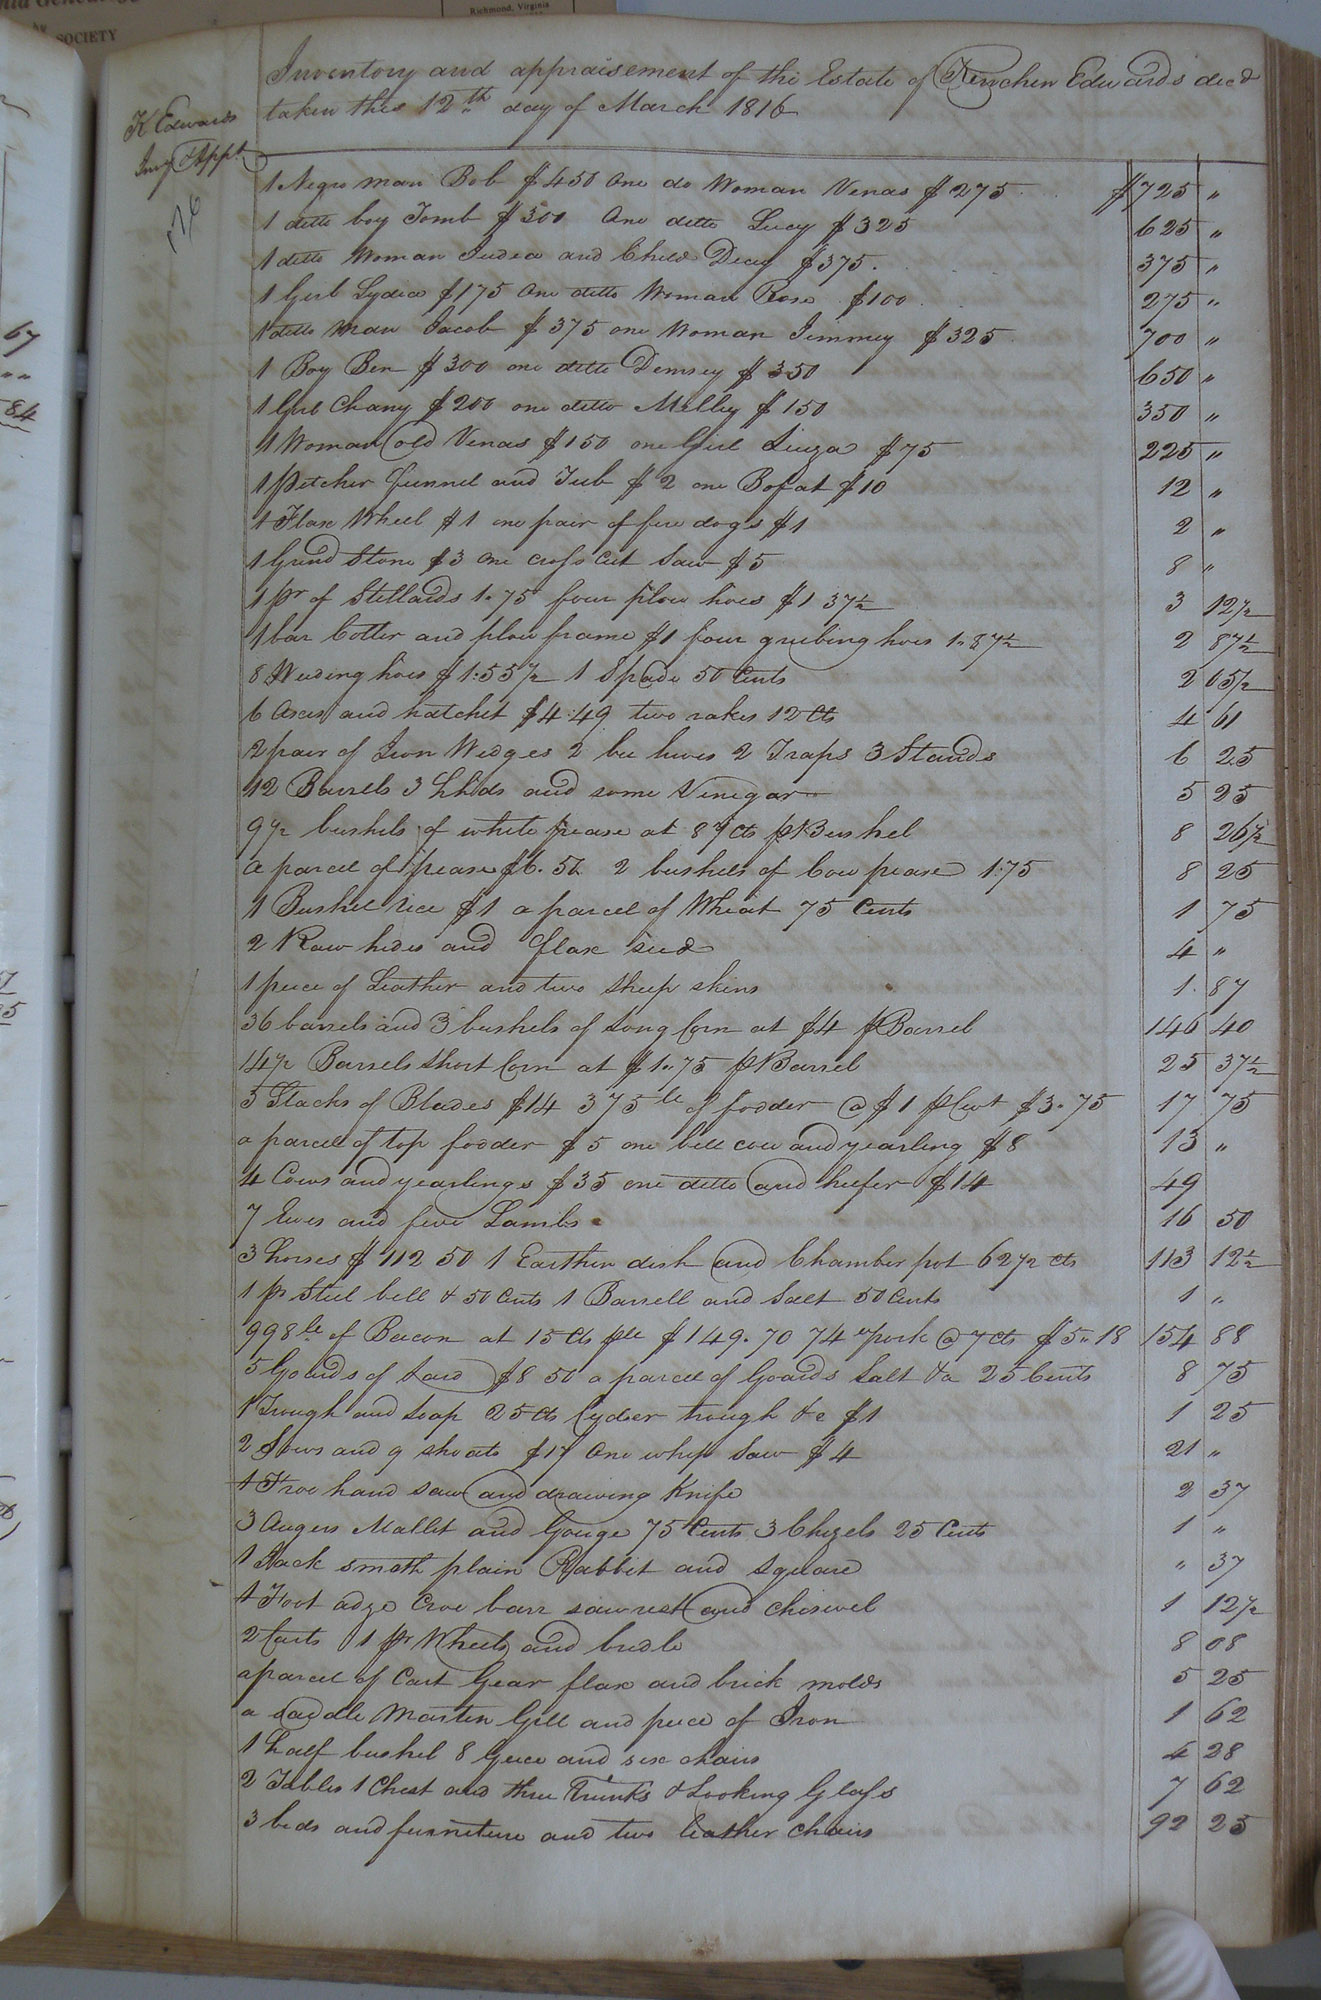 Richmond, Virginia
SOCIETY
Inventory and appraisement of the Estate of Kinchen Edwards decd
taken this 12th day of March 1816
K Edwards
Invy & Appt
67
84
1 Negro man Bob $450 One do Woman Venas $275 $725 "
1 ditto boy Tomb $300 One ditto Lucy $325 625 "
1 ditto Woman Judea and Child Decy $375. 375 "
1 Girl Lydia $175 One ditto Woman Rose $100 275 "
1 ditto Man Jacob $375 one Woman Jemmey $325 700 "
1 Boy Ben $300 one ditto Demsey $350 650 "
1 Girl Chany $200 one ditto Milley $150 350 "
1 Woman old Venas $150 one Girl Luiza $75 225 "
1 Pitcher Funnel and Tub $2 one Bofat $10 12 "
1 Flax Wheel $1 one pair of fire dogs $1 2 "
1 Grind Stone $3 One cross cut Saw $5 8 "
1 pr of Stillards 1.75 four plow hoes $1 37½ 3 12½
1 bar Cotter and plow frame $1 four grubing hoes 1.87½ 2 87½
8 Weeding hoes $1.55½ 1 Spade 50 Cents 2 05½
6 Axes and hatchet $4.49 two rakes 12 Cts 4 61
2 pair of Iron Wedges 2 bee hives 2 Traps 3 Stands 6 25
12 Barrels 3 hhds and some Vinegar 5 25
9½ bushels of white pease at 87 cts p Bushel 8 26½
a parcel of pease $6.50 2 bushels of Cow pease 1.75 8 25
1 Bushel rice $1 a parcel of Wheat 75 Cents 1 75
2 Raw hides and flax seed 4 "
1 peece of Leather and two sheep skins 1. 87
36 barrels and 3 bushels of Long Corn at $4 p Barrel 146 40
14½ Barrels short Corn at $1.75 p Barrel 25 37½
3 Stacks of Blades $14 375 lb of fodder @ $1 p Cwt $3.75 17 75
a parcel of top fodder $5 one bell cow and yearling $8 13 "
4 Cows and yearlings $35 one ditto and heefer $14 49
7 Ewes and five Lambs 16 50
3 horses $112 50 1 Earthen dish and Chamber pot 62½ cts 113 12½
1 pr Steel bell & 50 Cents 1 Barrell and Salt 50 Cents 1 "
998 lb of Bacon at 15 Cts p lb $149.70 74 " pork @ 7 cts $5.18 154 88
5 Goards of Lard $8 50 a parcel of Goards Salt &a 25 Cents 8 75
1 Trough and Soap 25 cts Cydser trough &c $1 1 25
2 Sows and 9 shoats $17 One whip Saw $4 21 "
1 Froe hand saw and drawing Knife 2 37
3 Augers Mallet and Gouge 75 Cents 3 Chizels 25 Cents 1 "
1 Jack smoth plain Rabbit and square " 37
1 Foot adze Croe barr saw rest and chiswel 1 12½
2 Carts 1 pr Wheels and bridle 8 08
a parcel of Cart Gear flax and brick molds 5 25
a saddle Marten Gill and peece of Iron 1 62
1 half bushel 8 Geece and six chairs 4 28
2 Tables 1 Chest and three Trunks & Looking Glass 7 62
3 beds and furniture and two leather chairs 92 25